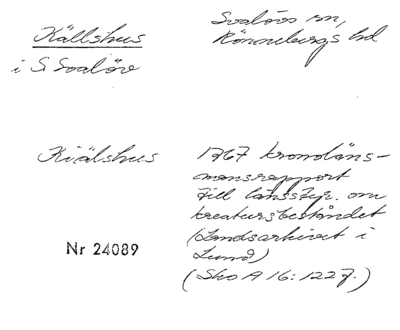 Källshus
i S Svalöv
Svalövs sn,
Rönnebergs hd
Kiälshus
1767 kronläns-
mansrapport
till länsstyr. om
kreatursbeståndet
(Landsarkivet i
Lund)
(Sko A 16:122 f.)
Nr 24089